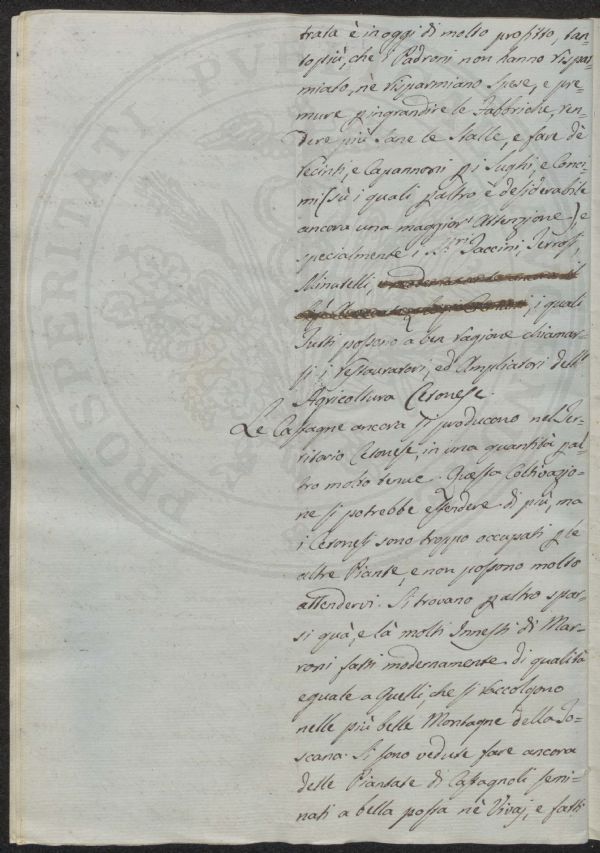 trata è in oggi di molto profitto, tan-
topiù, che i Padroni non hanno rispar-
miato, nè risparmiano spese, e pre-
mure p ingrandire le Fabbriche, ren-
dere più sane le Stalle, e fare dè
recinti, e Capannoni p i Sughi, e Conci-
mi (sù i quali p altro è desiderabile
ancora una maggior Attenzione.) e
specialmente i Sri Paccini,
Minatelli, i quali
Tutti possono a ben ragione chiamar-
si i restauratori, ed Ampliatori dell'
Agricoltura Ceronese.
Le Castagne ancora si producono nel Ter-
ritorio Ceronese, in una quantità p al-
tro molto tenue. Questa Coltivazio-
ne si potrebbe estendere di più, ma
i Ceronesi sono troppo occupati p le
altre Piante, e non possono molto
attendervi. Si trovano p altro spar-
si quà, e là molti Innesti di Mar-
roni fatti modernamente di qualità
eguale a Quelli, che si raccolgono
nelle più belle Montagne della To-
scana. Si sono vedute fare ancora
delle Piantate di Castagnoli semi-
nati a bella posta nè Vivaj, e fatti
PROSPERITATI PVB